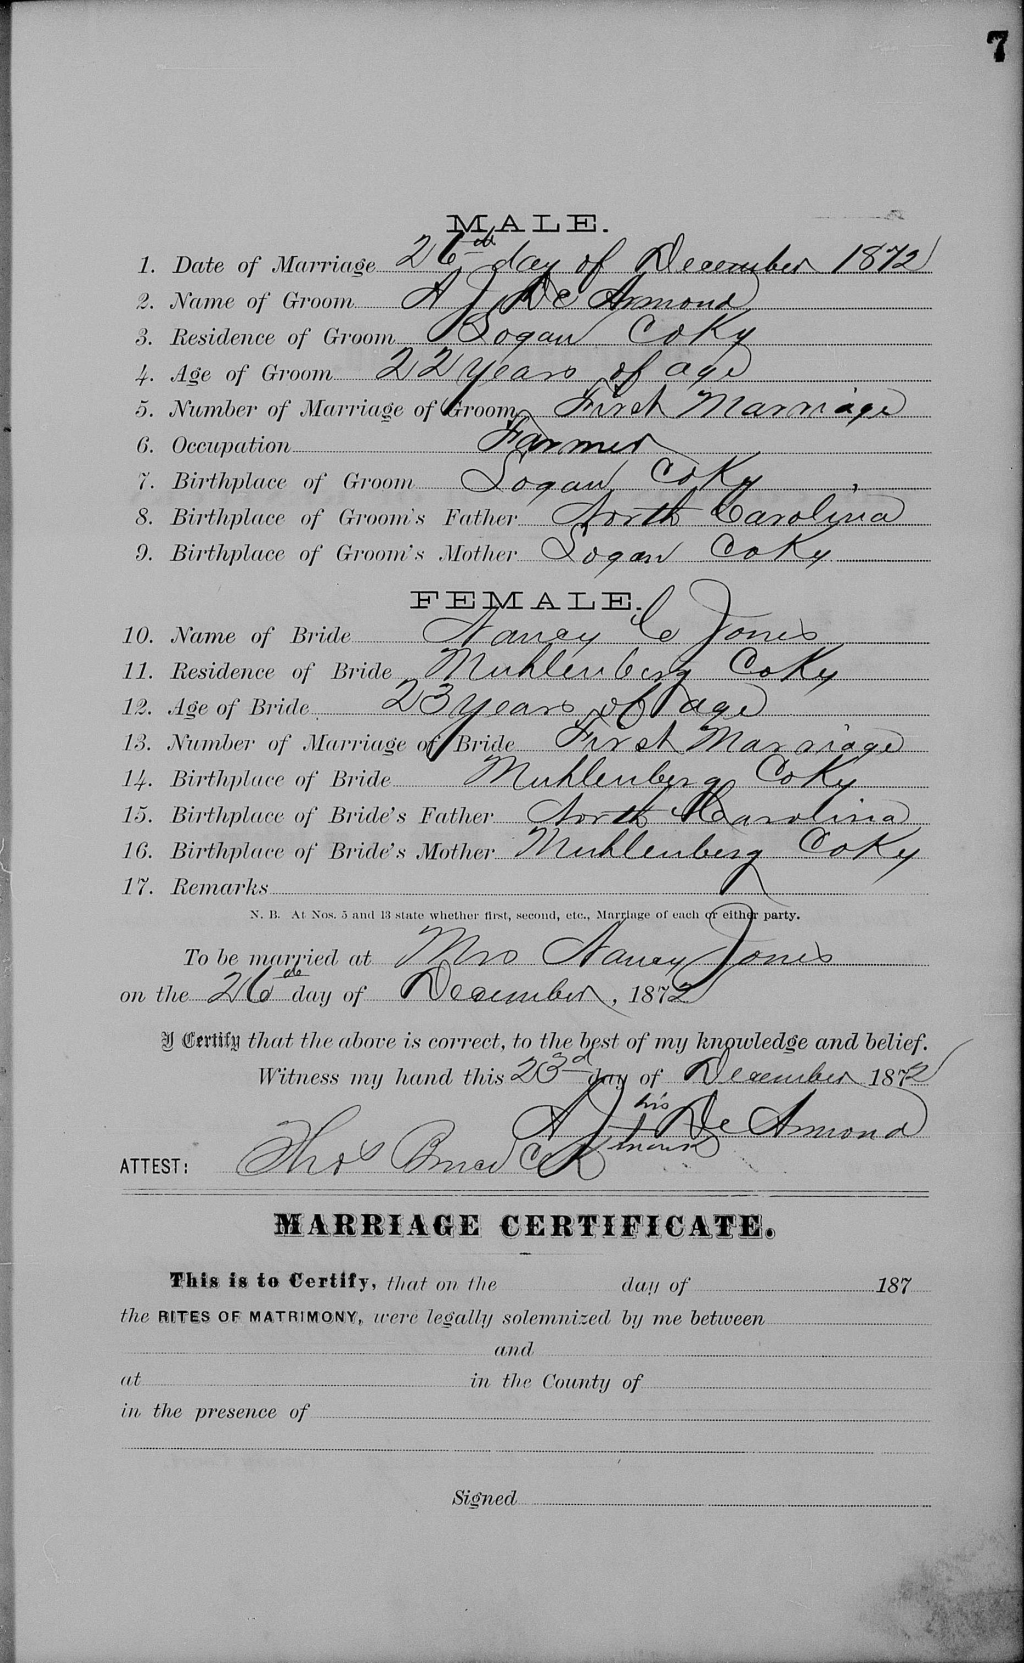 7
MALE.
1. Date of Marriage 26th day of December 1872
2. Name of Groom A J De Armond
3. Residence of Groom Logan Co Ky
4. Age of Groom 22 years of age
5. Number of Marriage of Groom First Marriage
6. Occupation Farmer
7. Birthplace of Groom Logan Co Ky
8. Birthplace of Groom's Father North Carolina
9. Birthplace of Groom's Mother Logan Co Ky
FEMALE.
10. Name of Bride Nancy C Jones
11. Residence of Bride Muhlenberg Co Ky
12. Age of Bride 23 years of age
13. Number of Marriage of Bride First Marriage
14. Birthplace of Bride Muhlenberg Co Ky
15. Birthplace of Bride's Father North Carolina
16. Birthplace of Bride's Mother Muhlenberg Co Ky
17. Remarks
N. B. At Nos. 5 and 13 state whether first, second, etc., Marriage of each or either party.
To be married at Mrs Nancy Jones
on the 26th day of December, 1872
I Certify that the above is correct, to the best of my knowledge and belief.
Witness my hand this 23d day of December 1872
A J his mark De Armond
ATTEST: Thos
MARRIAGE CERTIFICATE.
This is to Certify, that on the day of 187
the RITES OF MATRIMONY, were legally solemnized by me between
and
at in the County of
in the presence of
Signed